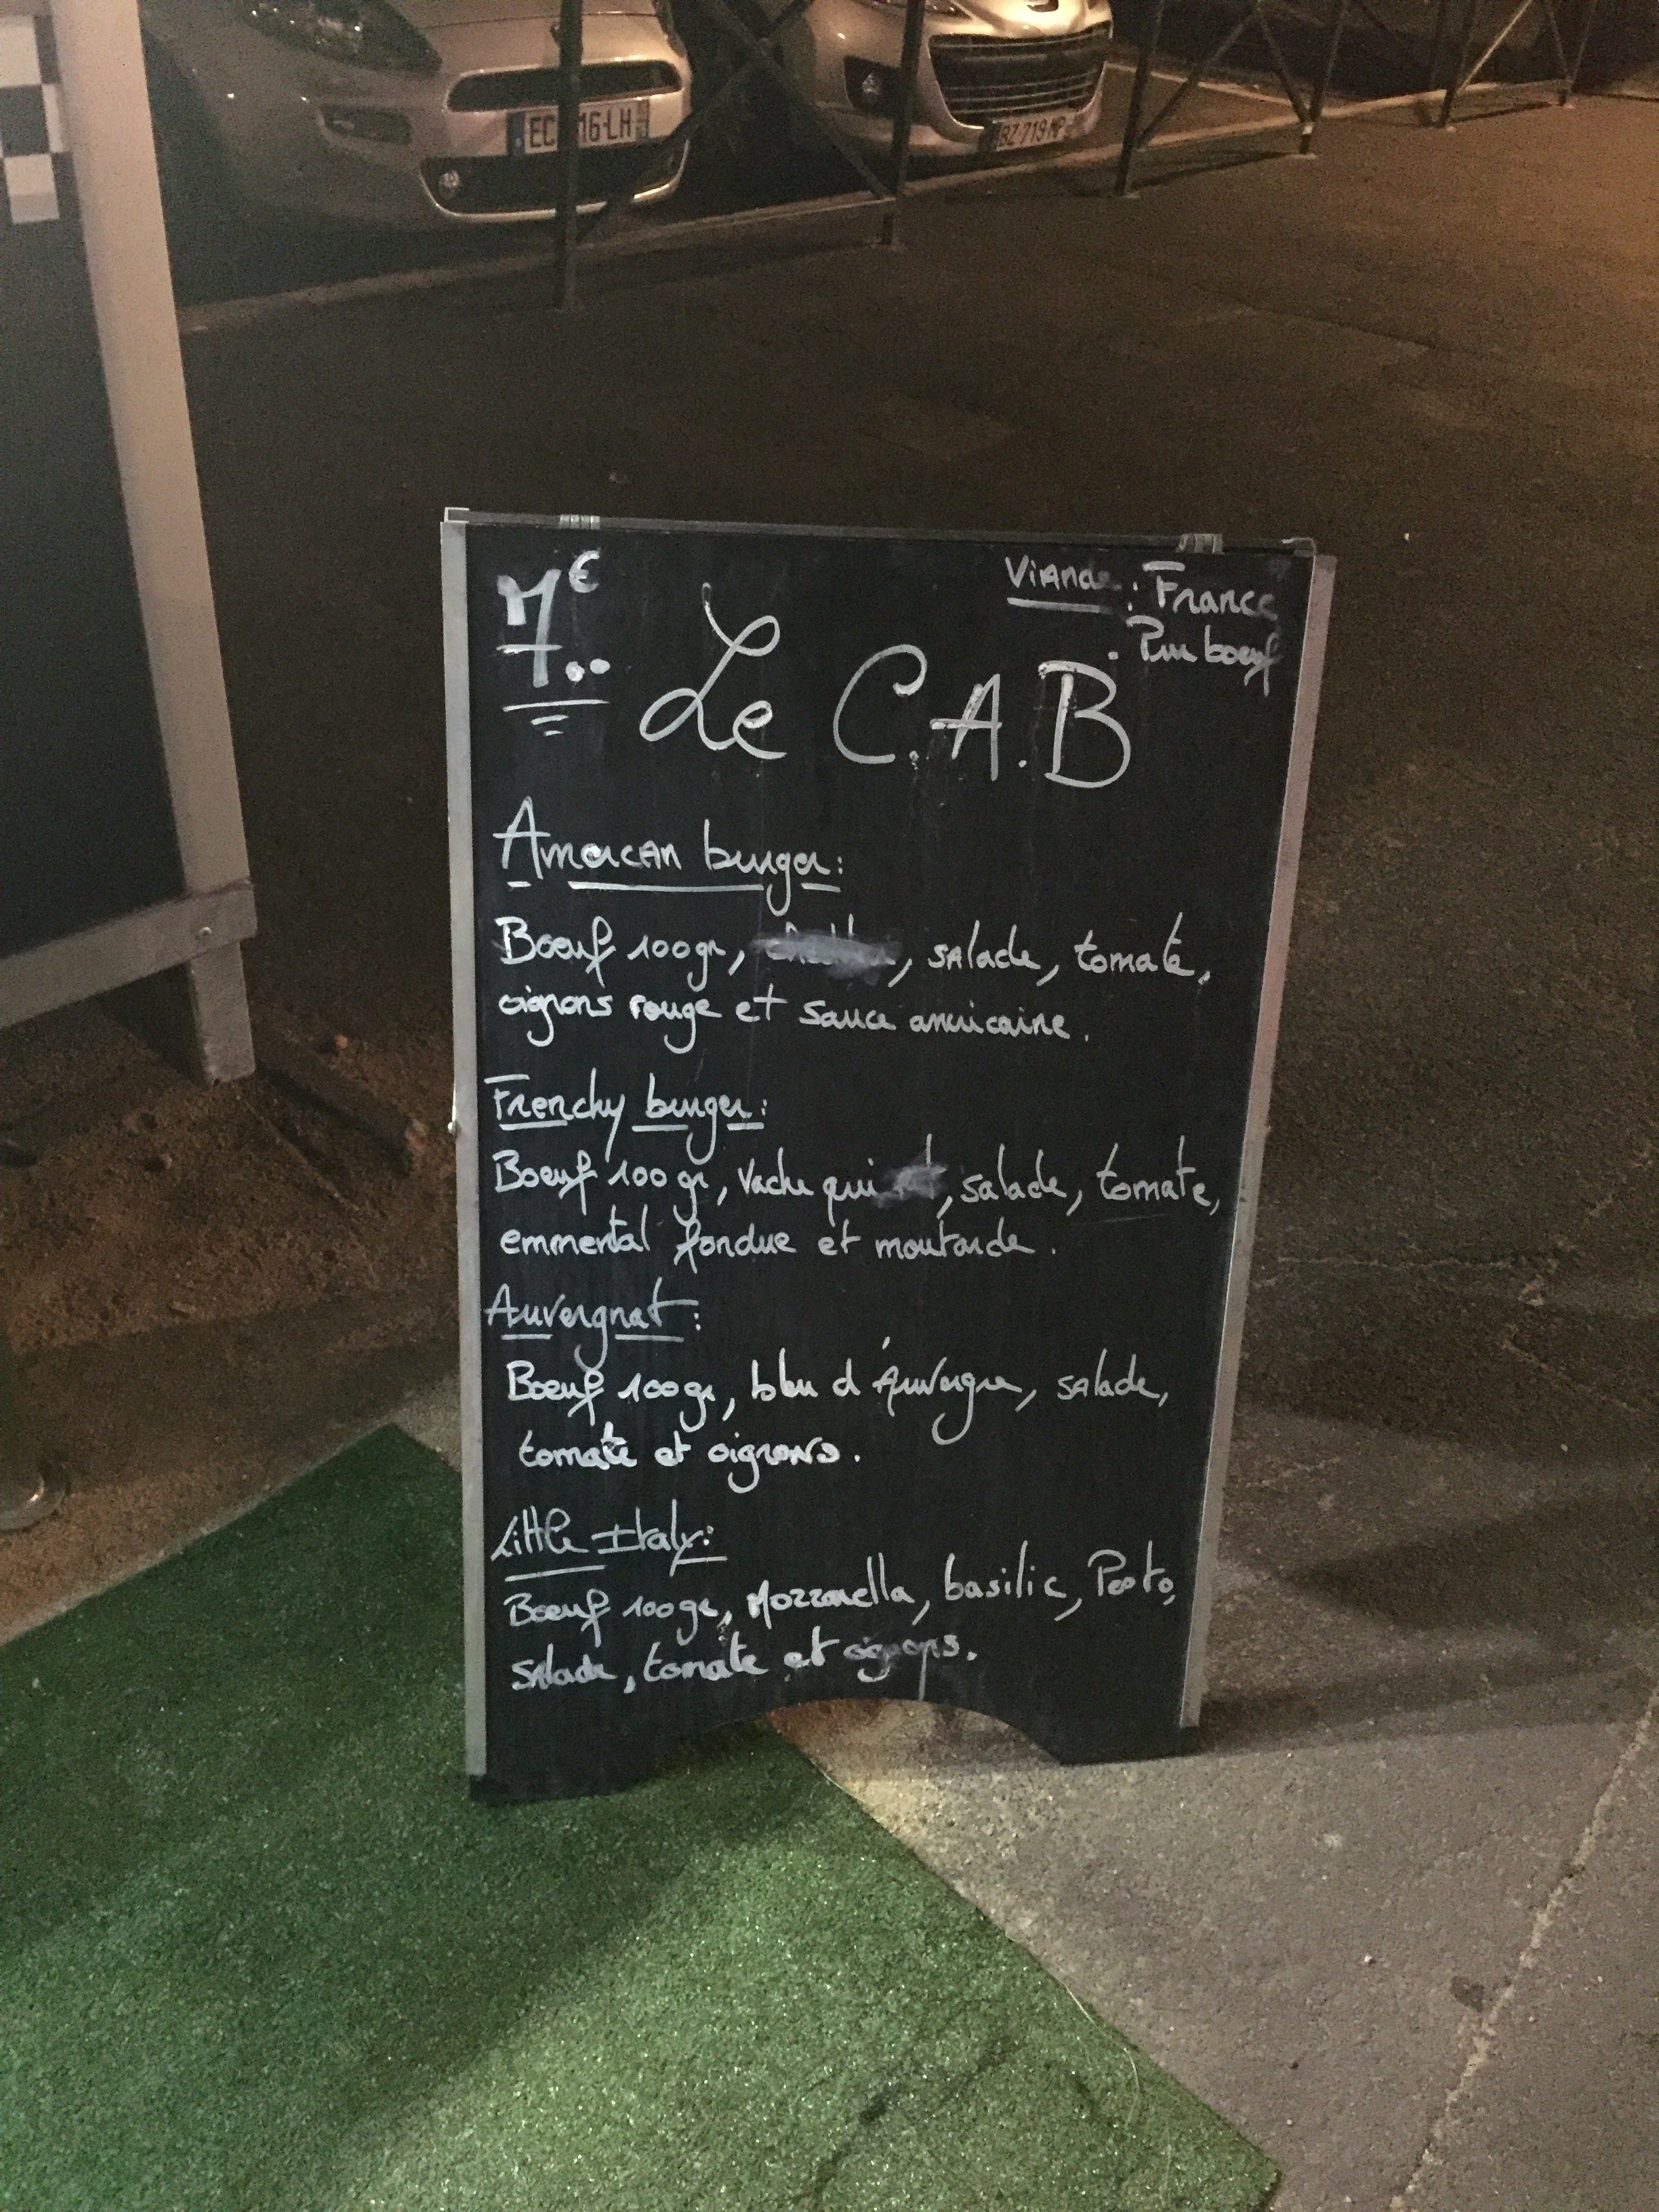 7€
00
Viande : France
. Pur boeuf
Le C.A.B
American burger:
Boeuf 100gr, , salade, tomate,
oignons rouge et sauce américaine.
Frenchy burger:
Boeuf 100 gr, vache qui , salade, tomate,
emmental fondue et moutarde.
Auvergnat:
Boeuf 100gr, bleu d'Auvergne, salade,
tomate et oignons.
Little Italy:
Boeuf 100gr, Mozzarella, basilic, Pesto,
salade, tomate et oignons.
16-LH
BZ-719-MP